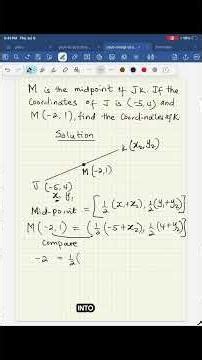 M is the midpoint of JK. If the
Coordinates of J is (-5,4) and
M(-2,1), find the Coordinates of K
Solution
K (x₂, y₂)
M(-2,1)
J (-5,4)
x₁ y₁
Mid-point = [½(x₁+x₂), ½(y₁+y₂)]
M(-2,1) = (½(-5+x₂), ½(4+y₂)]
Compare
-2 = ½(
INTO